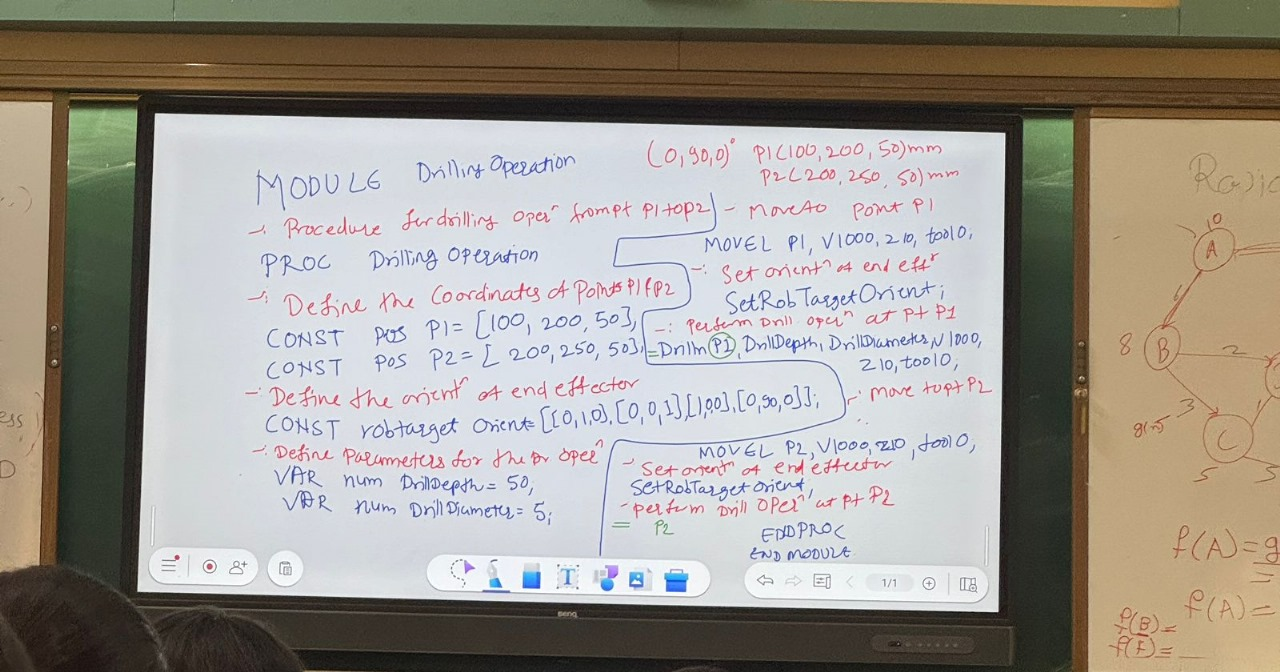 MODULE Drilling Operation
(0,90,0)° P1(100, 200, 50)mm
P2(200, 250, 50)mm
-: Procedure for drilling operⁿ from pt P1 to P2
PROC Drilling Operation
-: Define the Coordinates of Points P1 & P2
CONST pos P1 = [100, 200, 50],
CONST pos P2 = [200, 250, 50],
-: Define the orientⁿ of end effector
CONST robtarget Orient=[[0,1,0],[0,0,1][1,0,0],[0,90,0]];
-: Define Parameters for the Dr operⁿ
VAR num DrillDepth = 50,
VAR num DrillDiameter = 5;
- Move to Point P1
MOVEL P1, V1000, z10, tool0,
-: Set orientⁿ of end effʳ
SetRobTargetOrient;
-: Perform Drill operⁿ at pt P1
=DrillM P1, DrillDepth, DrillDiameter, V1000,
z10, tool0,
-: move to pt P2
MOVEL P2, V1000, z10, tool0,
- Set orientⁿ of end effector
SetRobTargetOrient,
- Perform Drill OPerⁿ at pt P2
= P2
ENDPROC
END MODULE
1/1
BenQ
10
A
6
8
B
2
3
C
5
5
f(A)=g
f(A)=
f(B)=
f(F)=
ess
D